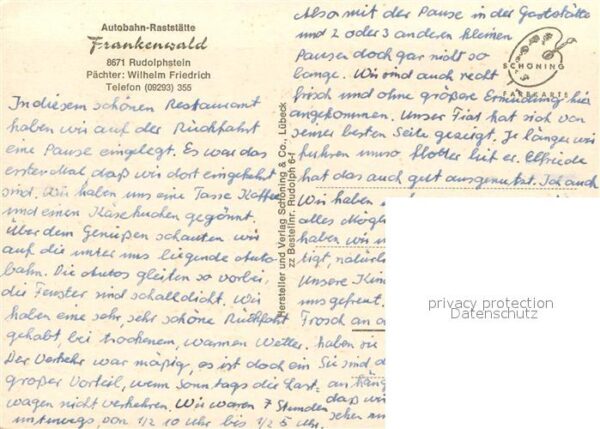 Autobahn-Raststätte
Frankenwald
8671 Rudolphstein
Pächter: Wilhelm Friedrich
Telefon (09293) 355
In diesem schönen Restaurant
haben wir auf der Rückfahrt
eine Pause eingelegt. Es war das
erste Mal, daß wir dort eingekehrt
sind. Wir haben uns eine Tasse Kaffee
und einen Käsekuchen gegönnt.
Über dem Genießen schauten wir
auf die unter uns liegende Auto-
bahn. Die Autos gleiten so vorbei,
die Fenster sind schalldicht. Wir
haben eine sehr, sehr schöne Rückfahrt
gehabt, bei trockenem, warmen Wetter.
Der Verkehr war mäßig, es ist doch ein
großer Vorteil, wenn Sonntags die Last-
wagen nicht verkehren. Wir waren 7 Stunden
unterwegs, von 1/2 10 Uhr bis 1/2 5 Uhr.
Hersteller und Verlag Schöning & Co., Lübeck
zz Bestellnr. Rudolph 6-f
Also mit der Pause in der Gaststätte
und 2 oder 3 anderen kleinen
Pausen doch gar nicht so
lange. Wir sind auch recht
frisch und ohne größere Ermüdung hier
angekommen. Unser Fiat hat sich von
seiner besten Seite gezeigt. Je länger wir
fuhren umso flotter lief er. Elfriede
hat das auch gut ausgenutzt. Ich auch
SCHÖNING
FARBKARTE
Wir haben
alles Mögl
haben wir
tigt, natürl
Unsere Kin
uns gefreut.
Frosch an
haben sie
Sie sind d
an
daß wi
sehen
privacy protection
Datenschutz